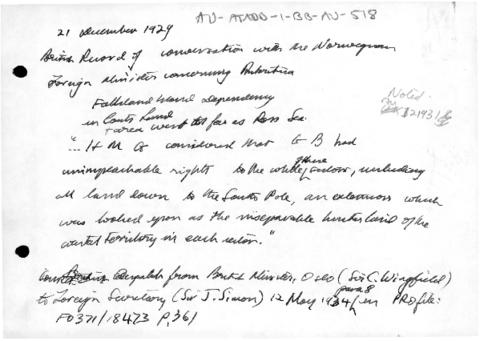 AU-ATADD-1-BB-AU-518
21 December 1929
British Record of conversation with the Norwegian
Foreign Minister concerning Antarctica
Falkland Island Dependency
in Coats Land
+ area west as far as Ross Sea.
Noted.
"... H M G considered that G B had
unimpeachable rights to the whole of these sectors, including
all land down to the South Pole, an extension which
was looked upon as the inseparable hinterland of the
coastal territory in each sector."
despatch from British Minister, Oslo (Sir C. Wingfield)
to Foreign Secretary (Sir J. Simon) 12 May 1934, para 8 in PRO file:
FO371/18473 P,361